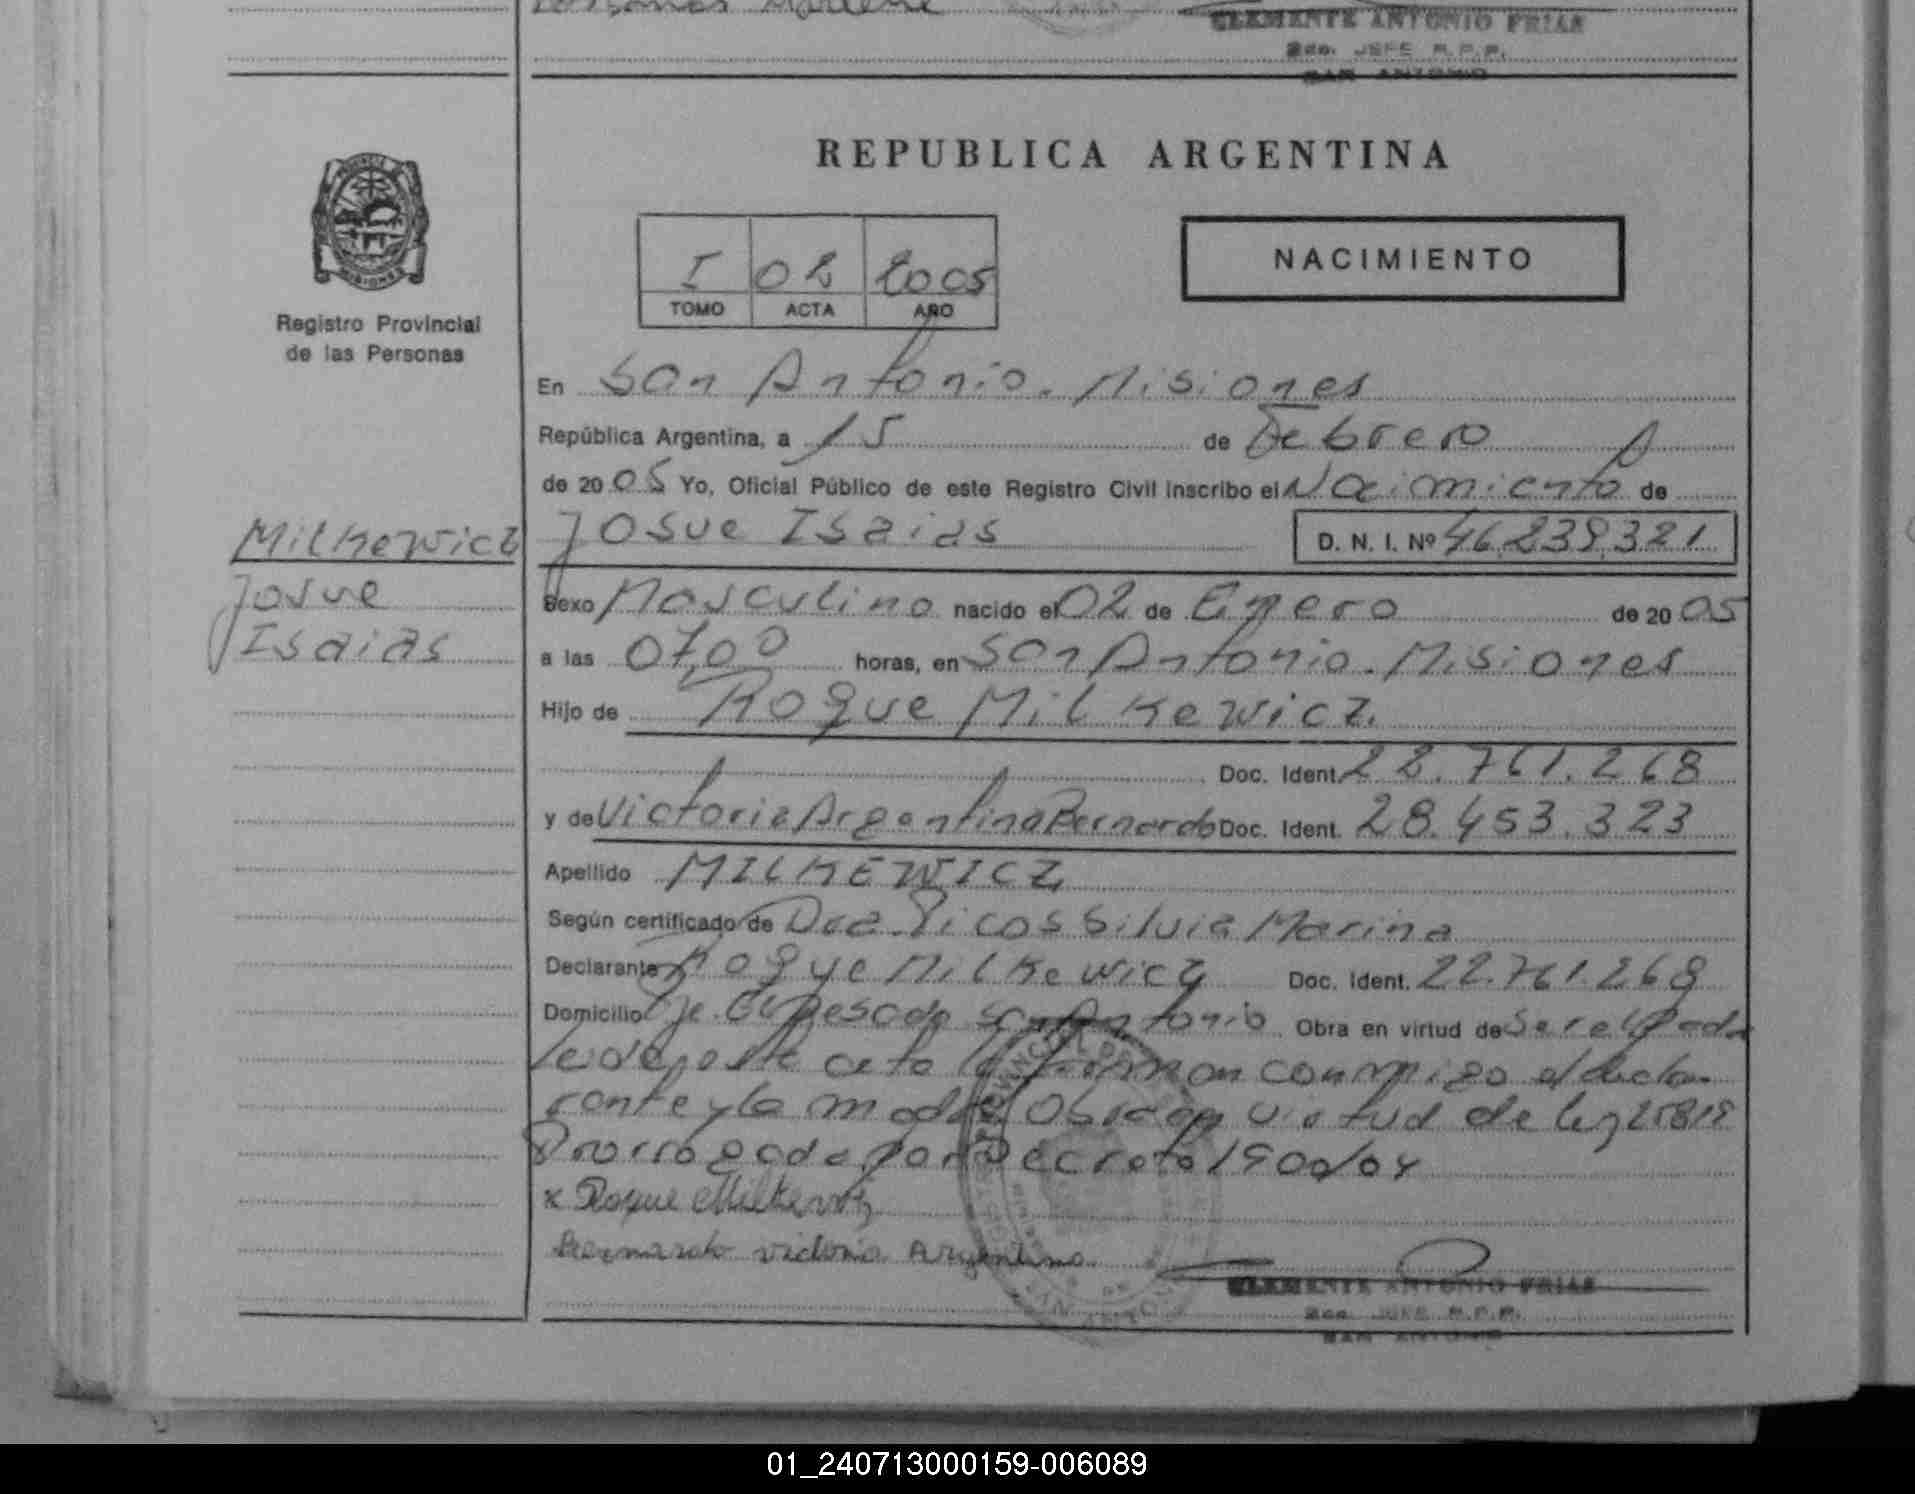 CLEMENTE ANTONIO FRIAS
2do. JEFE R.P.P.
SAN ANTONIO
REPUBLICA ARGENTINA
I 02 2005
TOMO ACTA AÑO
NACIMIENTO
Registro Provincial
de las Personas
En San Antonio. Misiones
República Argentina, a 15 de Febrero
de 2005 Yo, Oficial Público de este Registro Civil inscribo el Nacimiento de
Josue Isaias D. N. I. Nº 46.239.321
Milkewicz
Josue
Isaias
Sexo Masculino nacido el 02 de Enero de 2005
a las 07,00 horas, en San Antonio. Misiones
Hijo de Roque Milkewicz.
Doc. Ident. 22.761.268
y de Victoria Argentina Bernardo Doc. Ident. 28.453.323
Apellido MILKEWICZ
Según certificado de Dra. Picos Silvia Marina
Declarante Roque Milkewicz Doc. Ident. 22.761.268
Domicilio Pje. El Pescado San Antonio Obra en virtud de
acta la firman conmigo el decla-
rante y la madre Obra en virtud de ley 25819
Prorrogada por Decreto 1900/04
x Roque Milkewicz
Bernardo victoria Argentina
CLEMENTE ANTONIO FRIAS
2do. JEFE R.P.P.
SAN ANTONIO
01_240713000159-006089